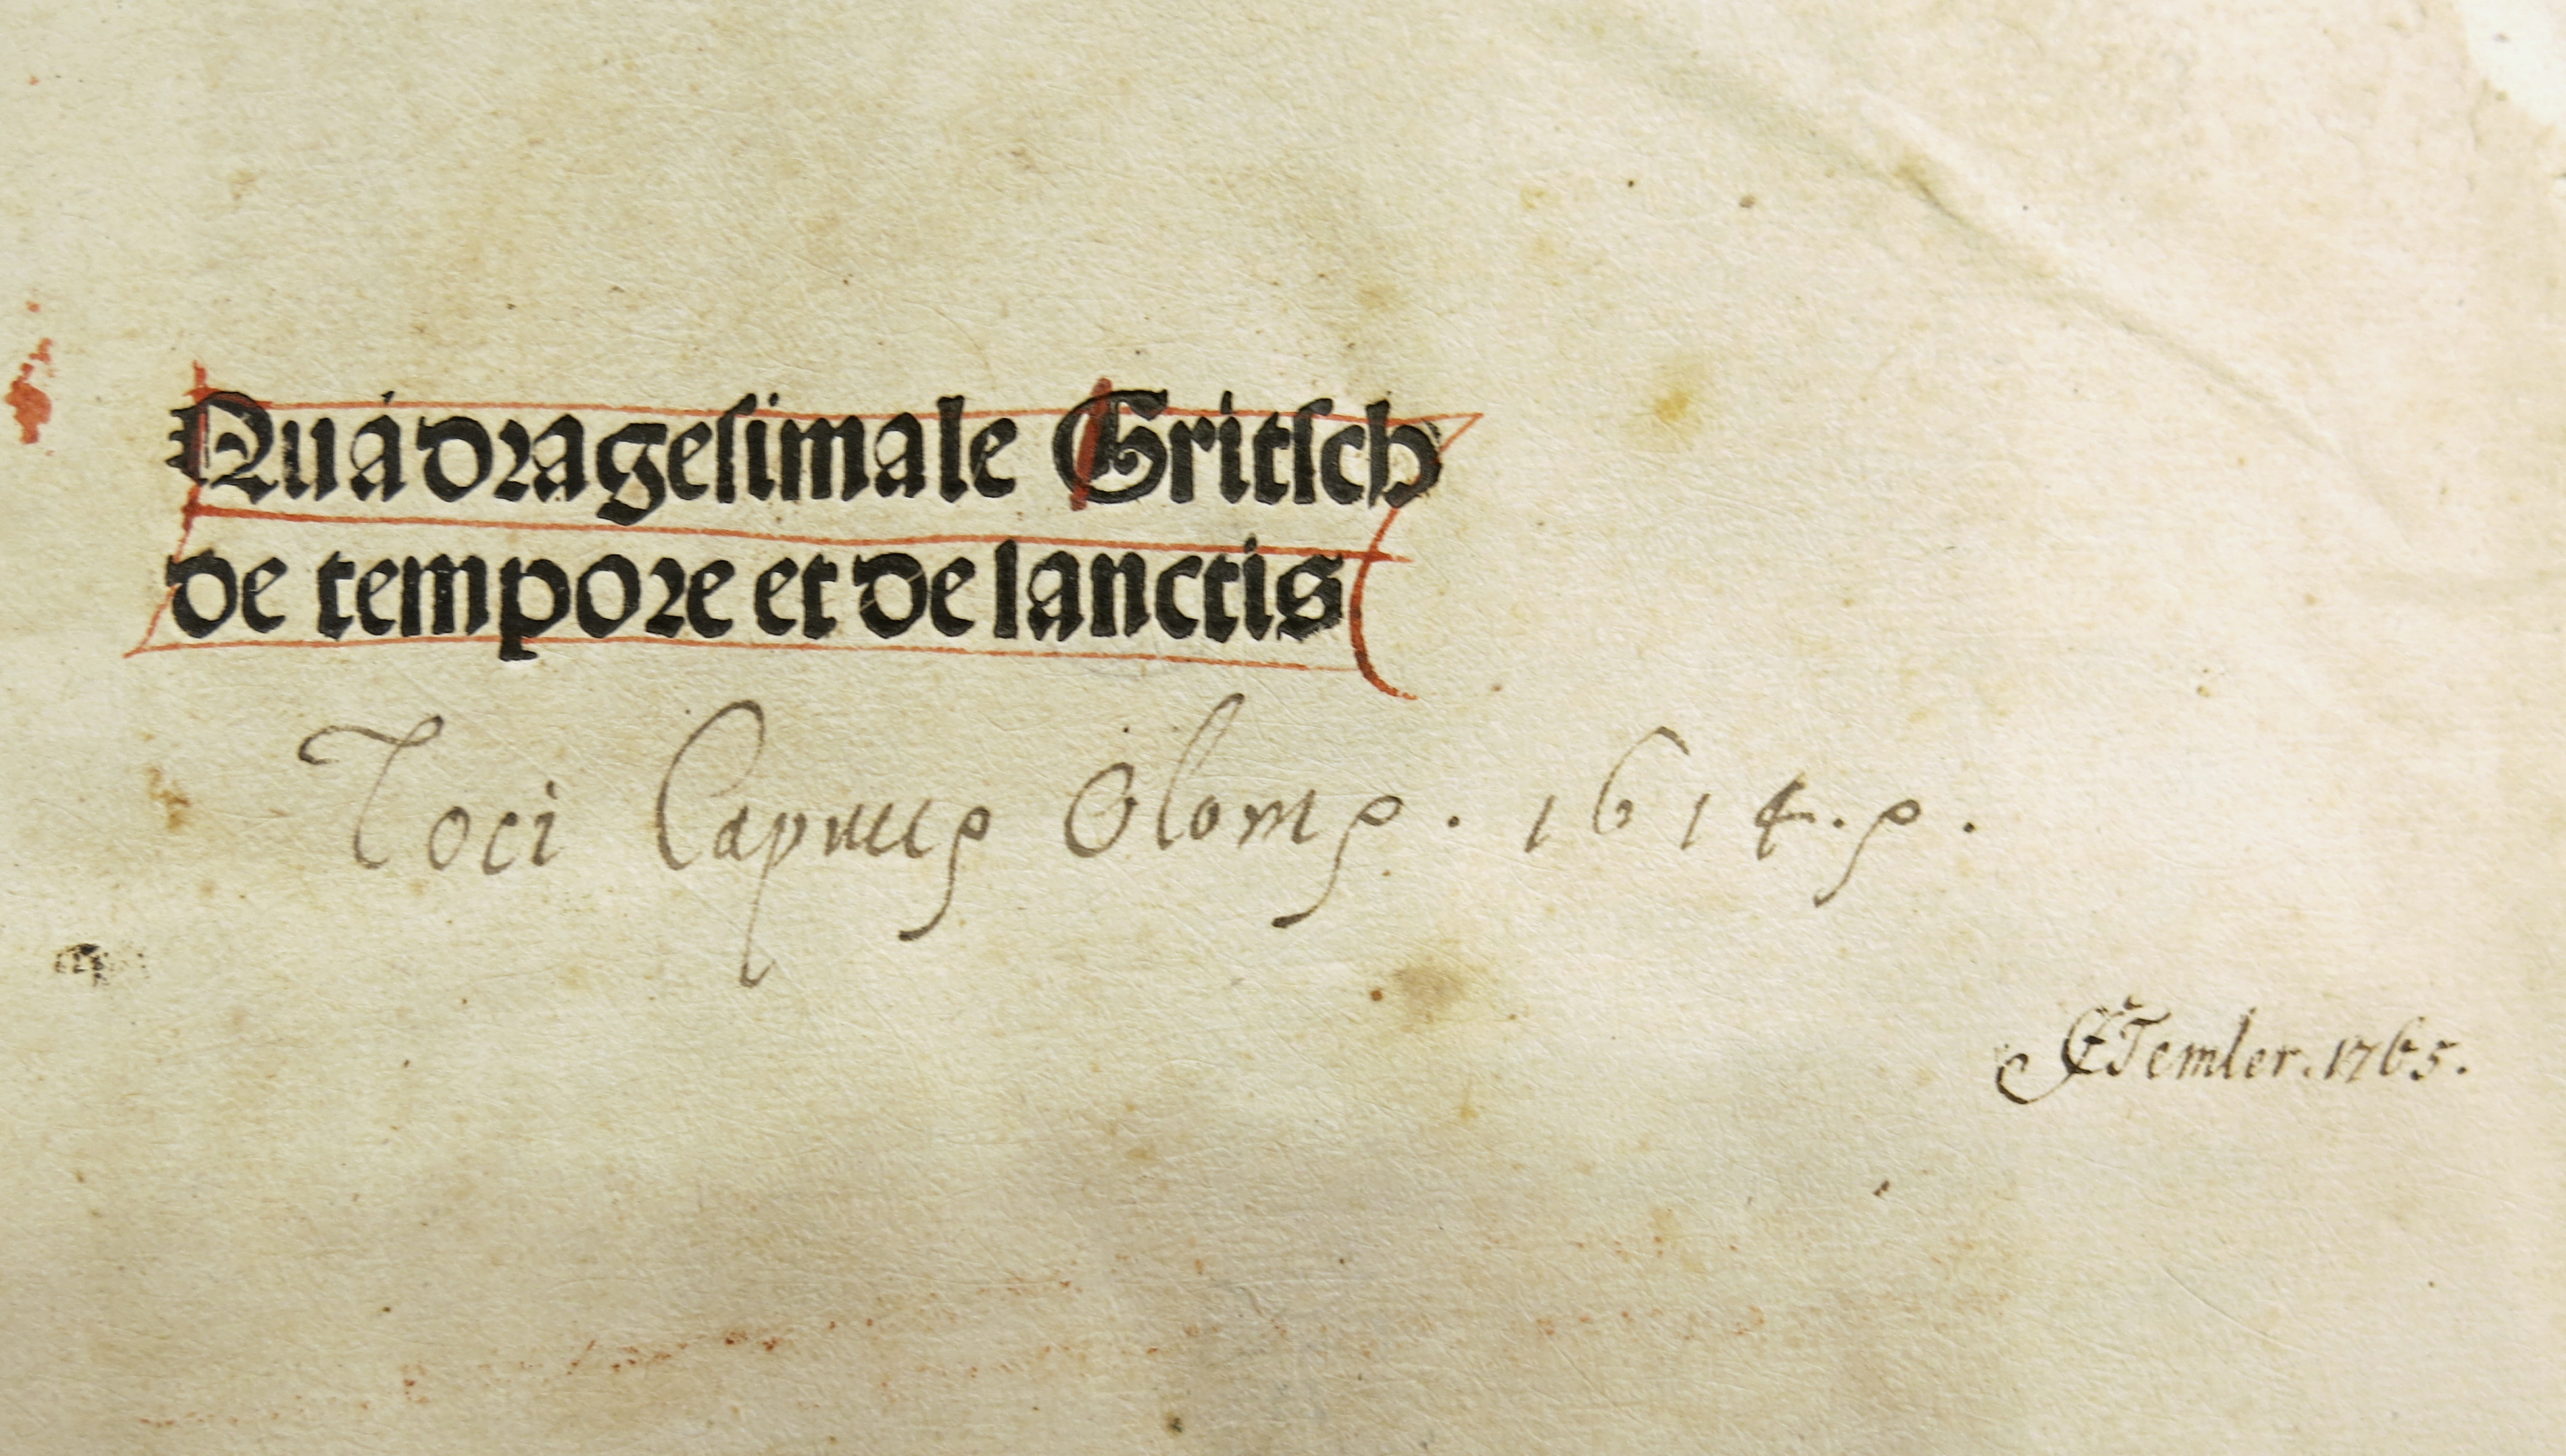 Quadragesimale Gritsch
de tempore et de sanctis
Loci Capuccꝭ Olomꝭ. 1614. ꝭ.
CFTemler. 1765.